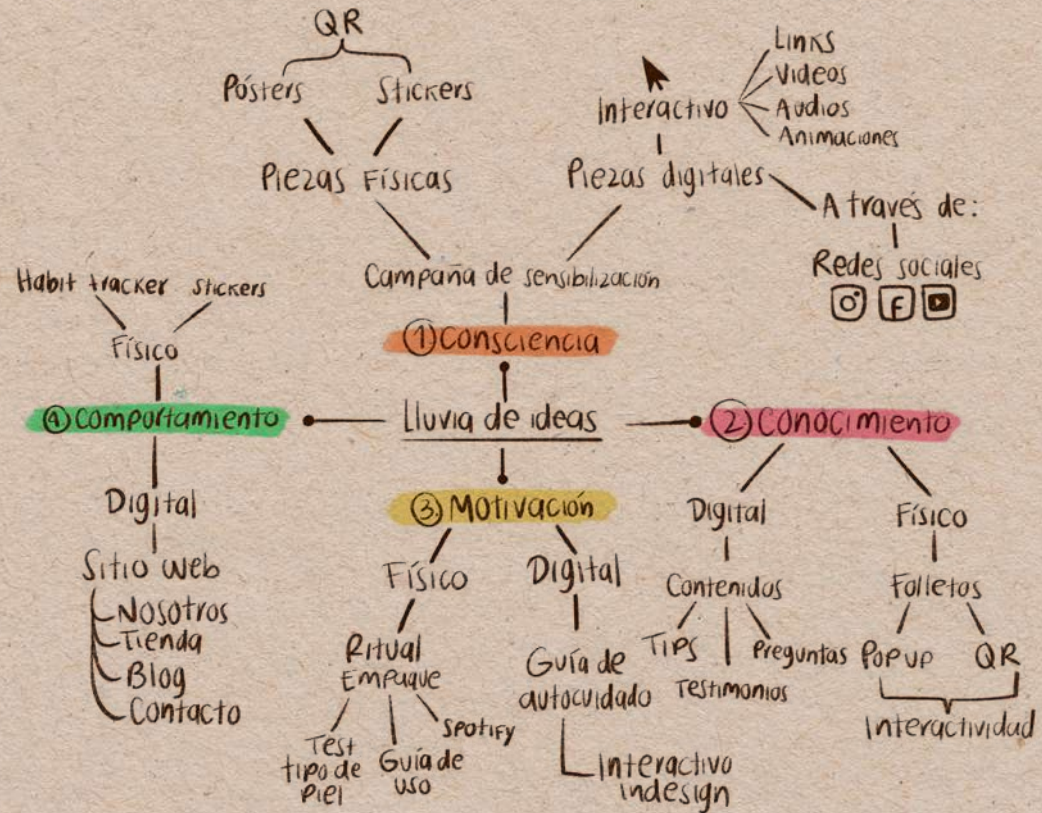 QR
Pósters
Stickers
Piezas Físicas
Links
Videos
Audios
Animaciones
Interactivo
Piezas digitales
A través de:
Redes sociales
Campaña de sensibilización
① Consciencia
Lluvia de ideas
② Conocimiento
Digital
Contenidos
Tips
Testimonios
Preguntas
Físico
Folletos
Pop up
QR
Interactividad
③ Motivación
Físico
Ritual
Empaque
Test
tipo de
piel
Guía de
uso
Spotify
Digital
Guía de
autocuidado
Interactivo
indesign
④ Comportamiento
Habit tracker
Stickers
Físico
Digital
Sitio web
Nosotros
Tienda
Blog
Contacto